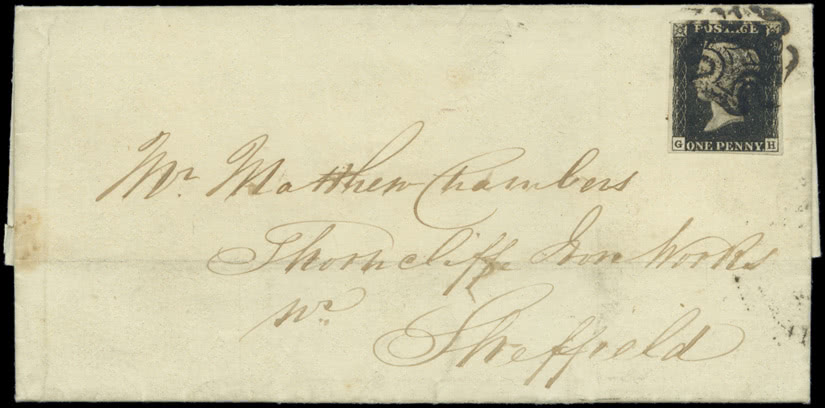 POSTAGE
G ONE PENNY H
Mr. Matthew Chambers
Thorncliffe Iron Works
Nr.
Sheffield